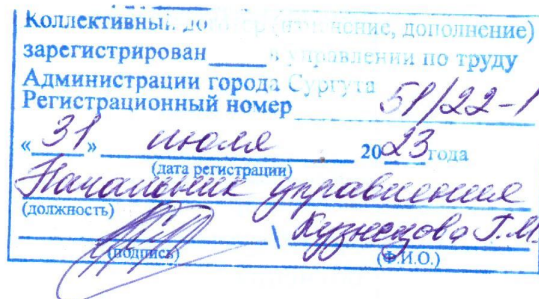 Коллективный договор (изменение, дополнение)
зарегистрирован в управлении по труду
Администрации города Сургута
Регистрационный номер 51/22-1
«31» июля 2023 года
(дата регистрации)
Начальник управления
(должность)
\ Кузнецова Г.М.
(подпись) (Ф.И.О.)